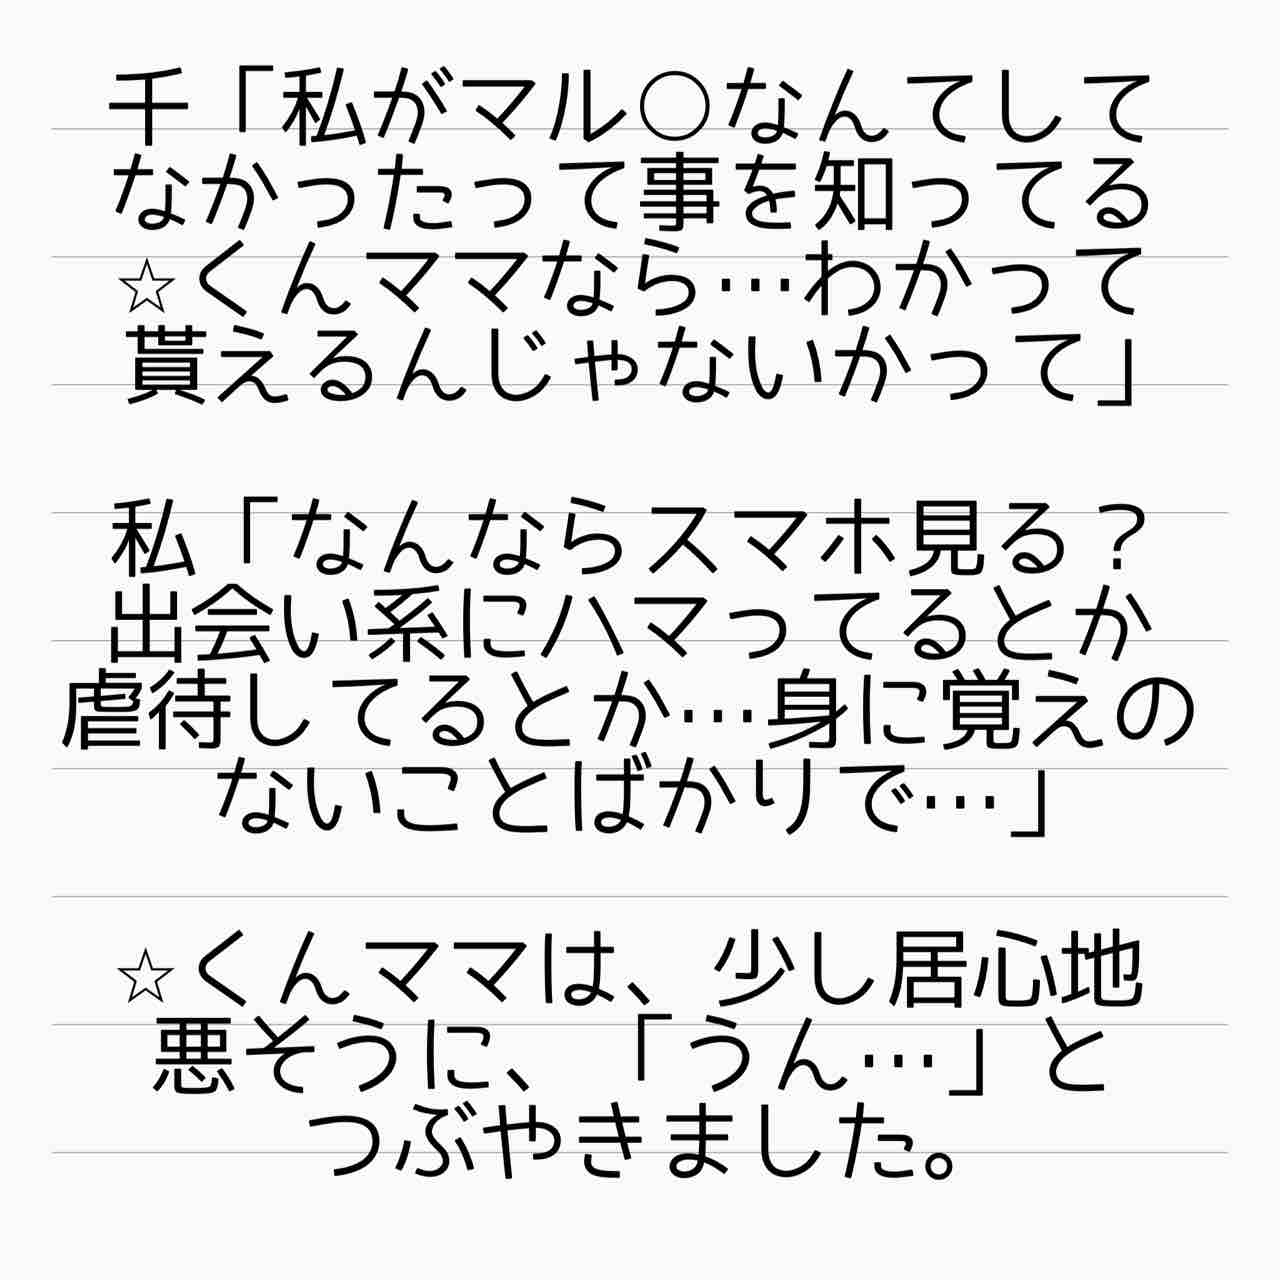 千「私がマル○なんてして
なかったって事を知ってる
☆くんママなら…わかって
貰えるんじゃないかって」
私「なんならスマホ見る？
出会い系にハマってるとか
虐待してるとか…身に覚えの
ないことばかりで…」
☆くんママは、少し居心地
悪そうに、「うん…」と
つぶやきました。